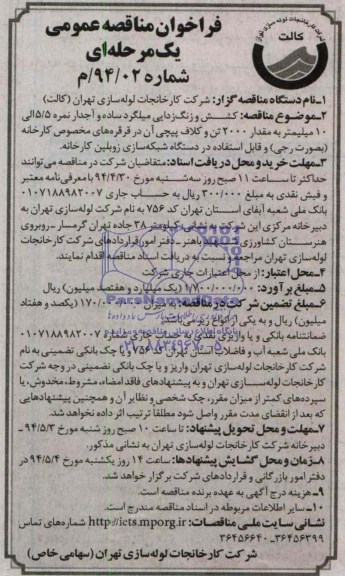 شرکت کارخانجات لوله سازی تهران
کالت
فراخوان مناقصه عمومی
یک مرحله‌ای
شماره ۹۴/۰۲/م
۱-نام دستگاه مناقصه گزار: شرکت کارخانجات لوله‌سازی تهران (کالت)
۲-موضوع مناقصه: کشش و زنگ‌زدایی میلگرد ساده و آجدار نمره ۵/۵الی
۱۰ میلیمتر به مقدار ۲۰۰۰ تن و کلاف پیچی آن در قرقره‌های مخصوص کارخانه
(بصورت رجی) و قابل استفاده در دستگاه شبکه‌سازی زوبلین کارخانه.
۳-مهلت خرید و محل دریافت اسناد: متقاضیان شرکت در مناقصه می‌توانند
حداکثر تا ساعت ۱۱ صبح روز سه‌شنبه مورخ ۹۴/۴/۳۰ با معرفی‌نامه معتبر
و فیش نقدی به مبلغ ۳۰۰/۰۰۰ ریال به حساب جاری ۰۱۰۷۱۸۸۹۸۲۰۰۷
بانک ملی شعبه آبفای استان تهران کد ۷۵۶ به نام شرکت لوله‌سازی تهران به
دبیرخانه مرکزی این شرکت به نشانی: کیلومتر ۳۸ جاده تهران گرمسار ـ روبروی
هنرستان کشاورزی شهید باهنر ـ دفتر امور قراردادهای شرکت کارخانجات
لوله‌سازی تهران مراجعه و نسبت به دریافت اسناد مناقصه اقدام نمایند.
۴-محل اعتبار: از محل اعتبارات جاری شرکت
۵-مبلغ برآورد: ۱/۷۰۰/۰۰۰/۰۰۰ (یک میلیارد و هفتصد میلیون) ریال
۶-مبلغ تضمین شرکت در مناقصه: به میزان ۱۷۰/۰۰۰/۰۰۰ (یکصد و هفتاد
میلیون) ریال و به یکی از
ضمانتنامه بانکی و یا واریز نقدی به حساب جاری شماره ۰۱۰۷۱۸۸۹۸۲۰۰۷
بانک ملی شعبه آب و فاضلاب استان تهران کد ۷۵۶ و یا چک بانکی تضمینی به نام
شرکت کارخانجات لوله‌سازی تهران واریز و یا چک بانکی تضمینی در وجه شرکت
کارخانجات لوله‌سازی تهران و به پیشنهادهای فاقد امضاء، مشروط، مخدوش، یا
سپرده‌های کمتر از میزان مقرر، چک شخصی و نظایر آن و همچنین پیشنهادهایی
که بعد از انقضای مدت مقرر واصل شود مطلقا ترتیب اثر داده نخواهد شد.
۷-مهلت و محل تحویل پیشنهاد: تا ساعت ۱۰ صبح روز شنبه مورخ ۹۴/۵/۳ ـ
دبیرخانه شرکت کارخانجات لوله‌سازی تهران به نشانی مذکور.
۸-زمان و محل گشایش پیشنهادها: ساعت ۱۴ روز یکشنبه مورخ ۹۴/۵/۴ در
دفتر امور بازرگانی و قراردادهای شرکت برگزار خواهد شد.
۹-هزینه درج آگهی به عهده برنده مناقصه است.
۱۰-سایر اطلاعات مربوطه در اسناد مناقصه مندرج است.
نشانی سایت ملی مناقصات: http://iets.mporg.ir شماره‌های تماس
۳۶۴۵۶۳۹۹ـ۳۶۴۵۶۶۴۰
شرکت کارخانجات لوله‌سازی تهران (سهامی خاص)
ParsNamadData